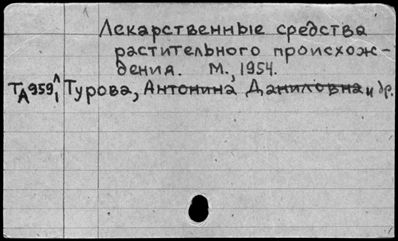 Лекарственные средства
растительного происхож-
дения. М., 1954.
ТА959 Л/1 Турова, Антонина Даниловна и др.